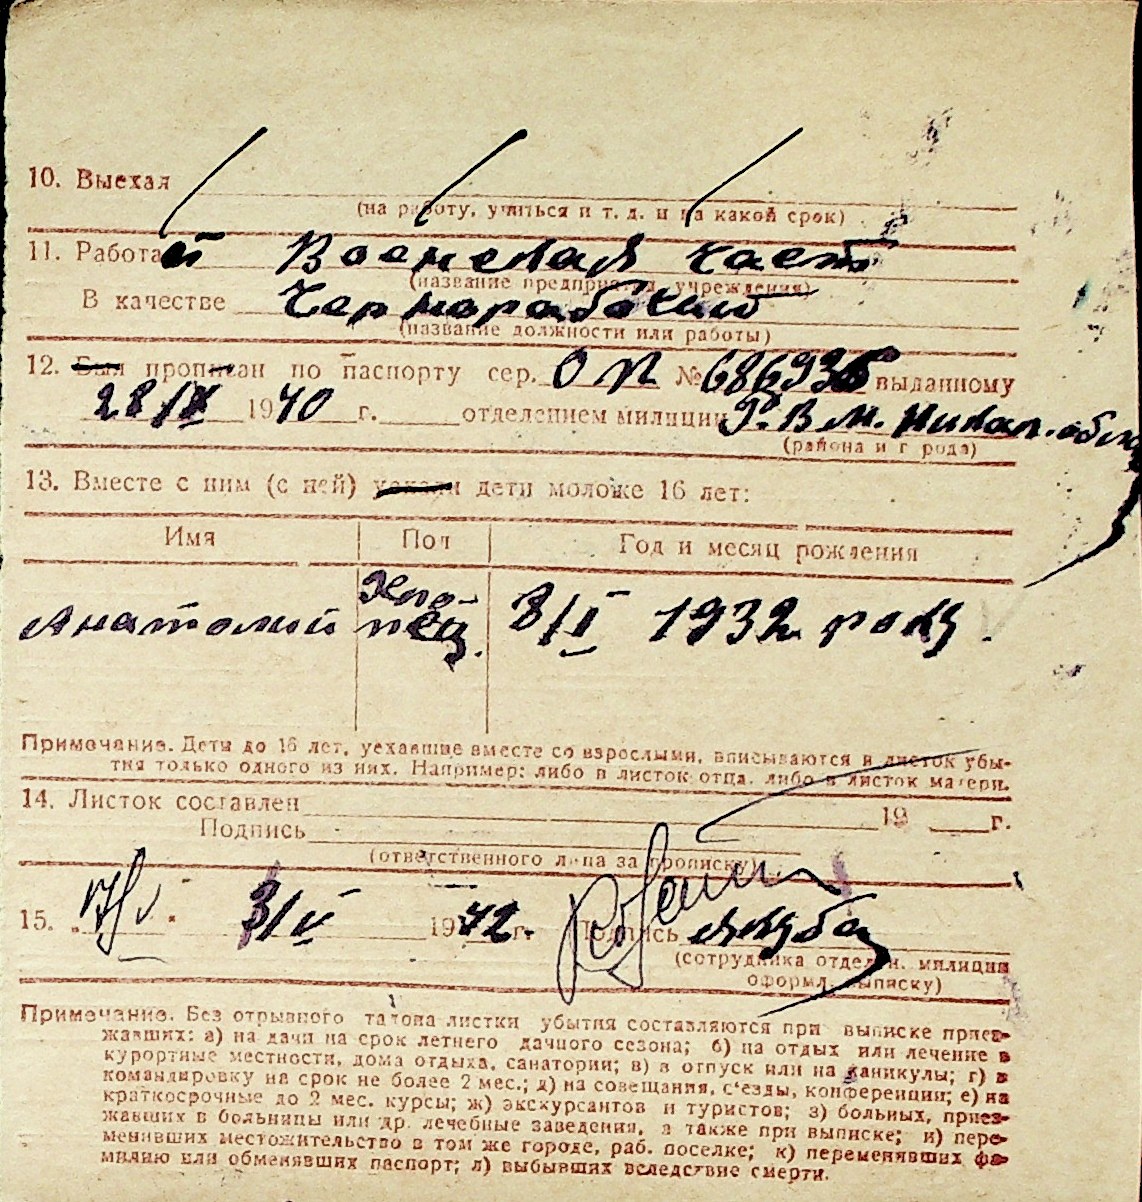 10. Выехал
(на работу, учиться и т. д. и на какой срок)
11. Работает Военная част
(название предприятия, учреждения)
В качестве Чернорабочий
(название должности или работы)
12. Был прописан по паспорту сер. № 686936 выданному
28/IX 1940 г. отделением милиции Р.В.М. Никол. обл
(района и города)
13. Вместе с ним (с ней) уехали дети моложе 16 лет:
Имя Пол Год и месяц рождения
Анатолий Хло-
пец. 8/I 1932 року.
Примечание. Дети до 16 лет, уехавшие вместе со взрослыми, вписываются в листок убы-
тия только одного из них. Например: либо в листок отца, либо в листок матери.
14. Листок составлен 19 г.
Подпись
(ответственного лица за прописку)
15. 3/IV 1942 г. Подпись
(сотрудника отделен. милиции
оформл. выписку)
Примечание. Без отрывного талона листки убытия составляются при выписке приез-
жавших: а) на дачи на срок летнего дачного сезона; б) на отдых или лечение в
курортные местности, дома отдыха, санатории; в) в отпуск или на каникулы; г) в
командировку на срок не более 2 мес.; д) на совещания, с'езды, конференции; е) на
краткосрочные до 2 мес. курсы; ж) экскурсантов и туристов; з) больных, приез-
жавших в больницы или др. лечебные заведения, а также при выписке; и) пере-
менивших местожительство в том же городе, раб. поселке; к) переменявших фа-
милию или обменявших паспорт; л) выбывших вследствие смерти.